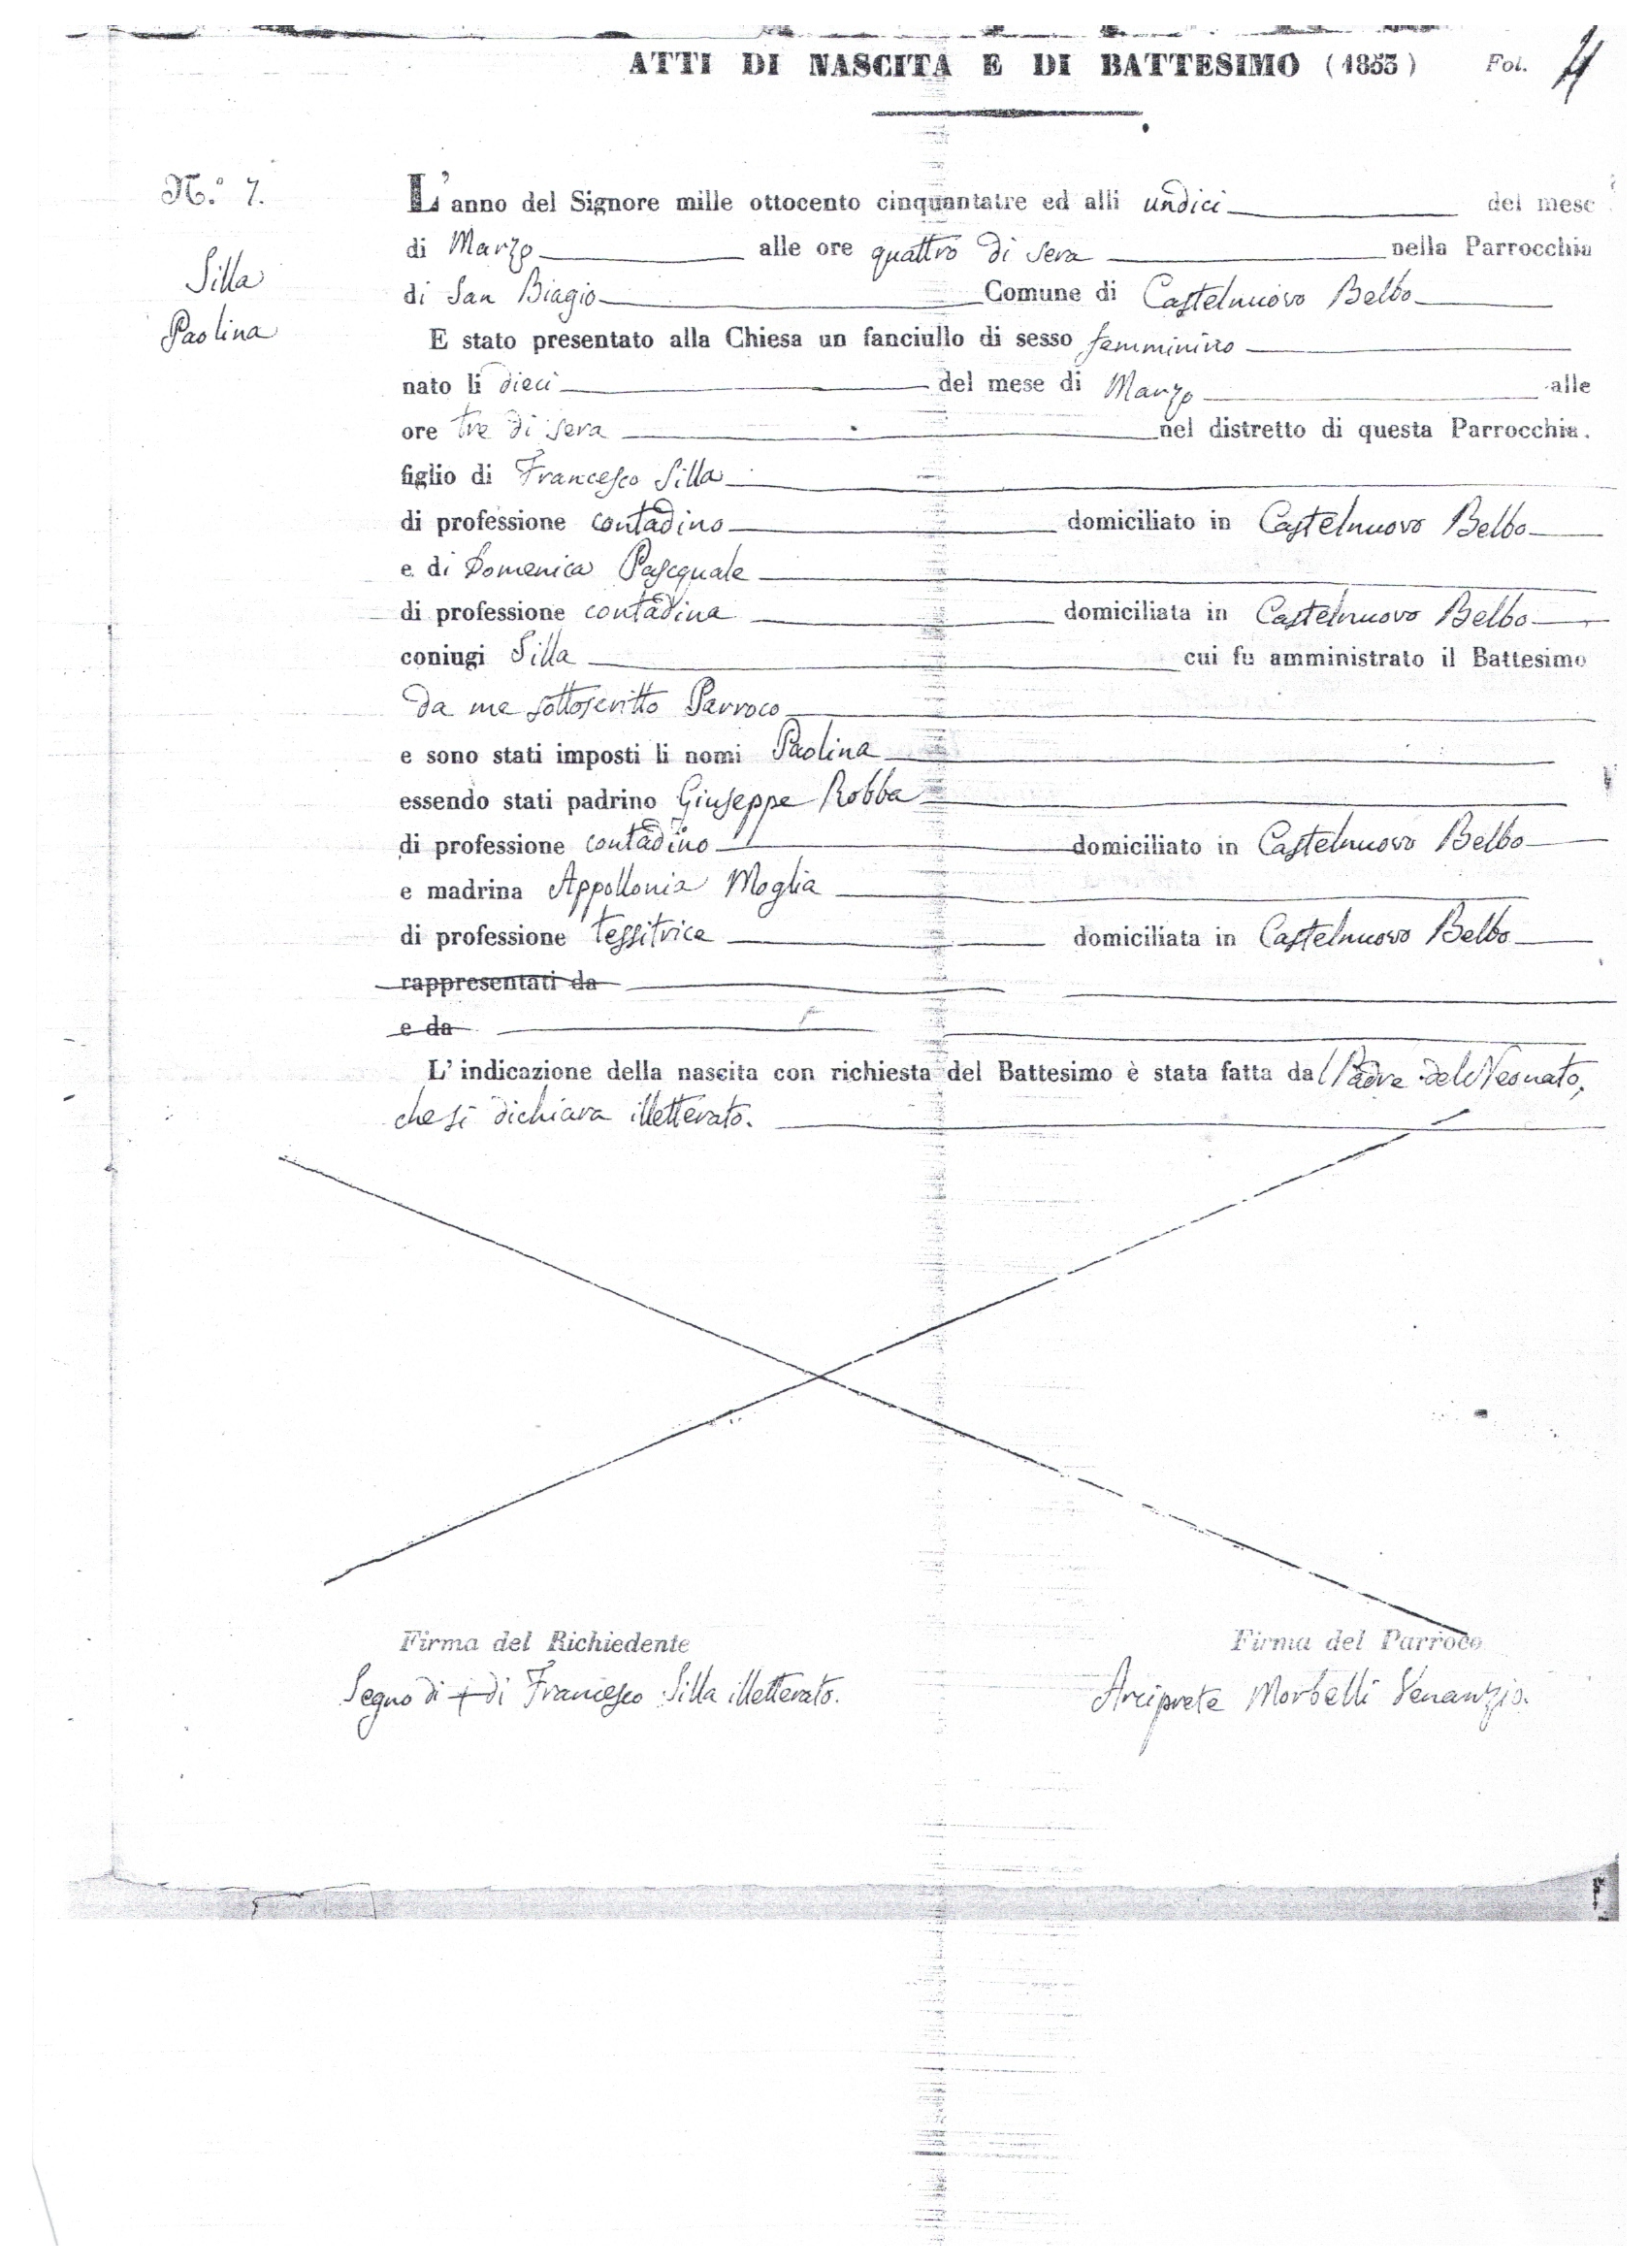 ATTI DI NASCITA E DI BATTESIMO (1853) Fol. 4
N.° 7.
Silla
Paolina
L'anno del Signore mille ottocento cinquantatre ed alli undici del mese
di Marzo alle ore quattro di sera nella Parrocchia
di San Biagio Comune di Castelnuovo Belbo
E stato presentato alla Chiesa un fanciullo di sesso femminino
nato li dieci del mese di Marzo alle
ore tre di sera nel distretto di questa Parrocchia.
figlio di Francesco Silla
di professione contadino domiciliato in Castelnuovo Belbo
e di Domenica Pascquale
di professione contadina domiciliata in Castelnuovo Belbo
coniugi Silla cui fu amministrato il Battesimo
da me sottoscritto Parroco
e sono stati imposti li nomi Paolina
essendo stati padrino Giuseppe Robba
di professione contadino domiciliato in Castelnuovo Belbo
e madrina Appollonia Moglia
di professione tessitrice domiciliata in Castelnuovo Belbo
rappresentati da
e da
L'indicazione della nascita con richiesta del Battesimo è stata fatta dal Padre del Neonato,
che si dichiara illetterato.
Firma del Richiedente
Segno di + di Francesco Silla illetterato.
Firma del Parroco
Arciprete Morbelli Venanzio.